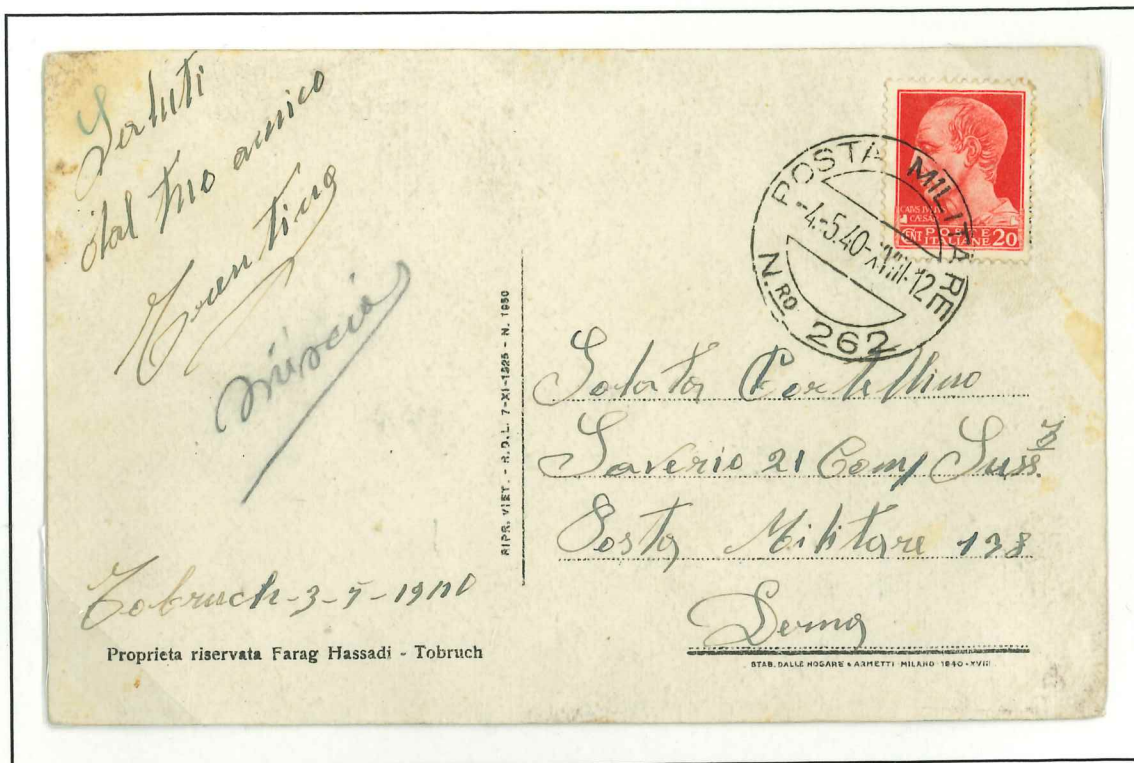 Saluti
dal tuo amico
Tobruch - 3 - 5 - 1940
Proprieta riservata Farag Hassadi - Tobruch
RIPR. VIET. - R.D.L. 7-XI-1925 - N. 1950
POSTA MILITARE
-4.-5.40-XVIII-12
N.RO 262
POSTE
CENT ITALIANE 20
Saverio 21 Comp Suss
Posta Militare 138
Derna
STAB. DALLE NOGARE e ARMETTI MILANO 1940-XVIII